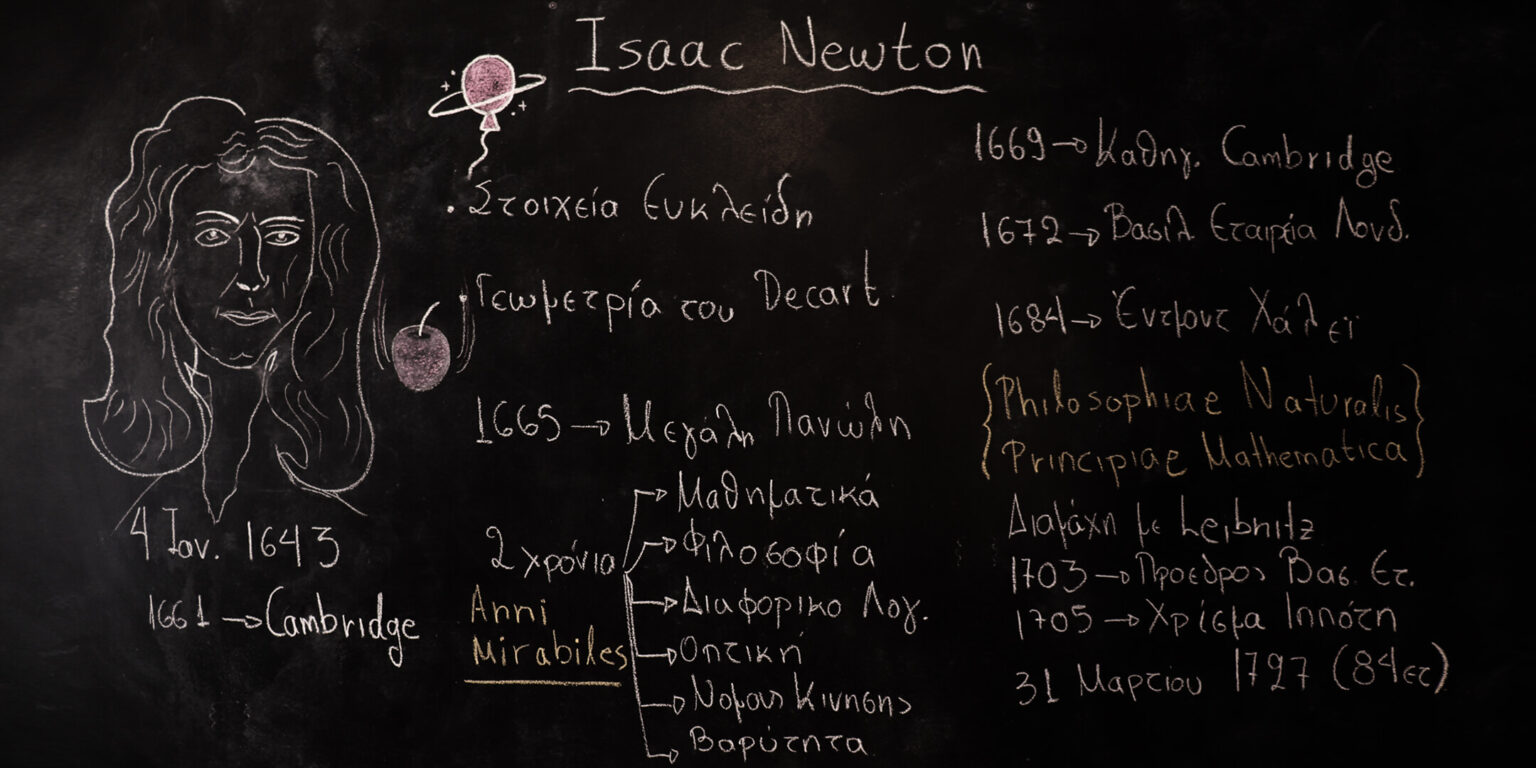 Isaac Newton
4 Ιαν. 1643
1661 → Cambridge
. Στοιχεία Ευκλείδη
. Γεωμετρία του Decart
1665 → Μεγάλη Πανώλη
2 χρόνια
Anni
Mirabiles
→ Μαθηματικά
→ Φιλοσοφία
→ Διαφορικο Λογ.
→ Οπτική
→ Νομους Κινησης
→ Βαρύτητα
1669 → Καθηγ. Cambridge
1672 → Βασιλ Εταιρεία Λονδ.
1684 → Έντμοντ Χάλεϊ
{Philosophiae Naturalis
Principiae Mathematica}
Διαμάχη με Leibnitz
1703 → Προεδρος Βασ. Ετ.
1705 → Χρίσμα Ιππότη
31 Μαρτίου 1727 (84ετ)